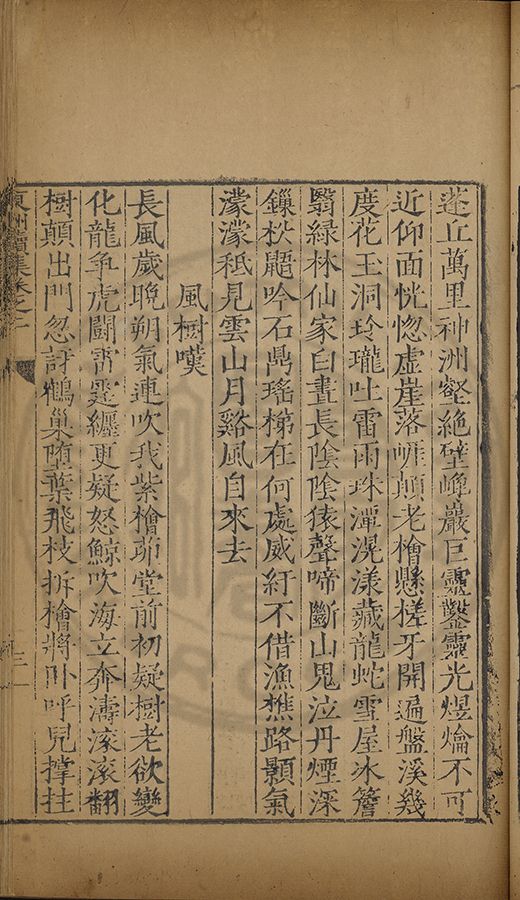 蓬丘萬里神洲壑絶壁峰巖巨靈鑿靈光煜爚不可
近仰面恍惚虛崖落嵊顛老檜懸槎牙開遍盤溪幾
度花玉洞玲瓏吐雷雨珠潭滉漾藏龍蛇雪屋冰簷
翳綠林仙家白晝長陰陰猿聲啼斷山鬼泣丹煙深
鏁松鼯吟石鼎瑤梯在何處威紆不借漁樵路顥氣
濛濛秖見雲山月谿風自來去
風樹嘆
長風歲晚朔氣連吹我紫檜茆堂前初疑樹老欲變
化龍爭虎鬭雷霆纏更疑怒鯨吹海立奔濤滚滚翻
樹顛出門忽訝鶴巢墮葉飛枝拆檜將卧呼兒撑拄
東州續集卷之二